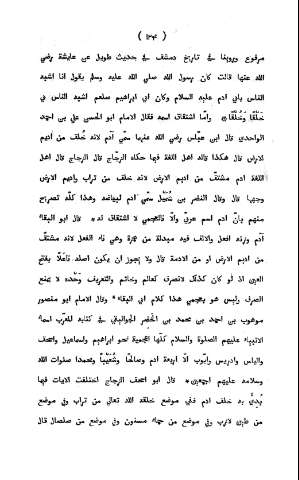 مرفوع وروينا فى تاريخ دمشق فى حديث طويل عن عايشة رضى
الله عنها قالت كان رسول الله صلى الله عليه وسلم يقول انا اشبه
الناس بابى ادم عليه السلام وكان ابى ابراهيم صلعم اشبه الناس بى
خَلْقًا وَخُلُقًا* وامّا اشتقاق اسمه فقال الامام ابو الحسن على بن احمد
الواحدى قال ابن عباس رضى الله عنهما سمّى آدم لانه خلف من اديم
الارض قال هكذا قاله اهل اللغة فيما حكاه الزجّاج قال الزجاج قال اهل
اللغة آدم مشتقّ من اديم الارض لانه خلف من تراب واديم الارض
وجهها قال وقال النضر بن شُمَيْل سمّى آدم لبياضه وهذا كلّه تصريح
منهم بانّ آدم اسم عربى والّا فالعجمى لا اشتقاق له* قال ابو البقاء
آدم وزنه افعل والالف فيه مبدلة من همزة وهى فاء الفعل لانه مشتقّ
من اديم الارض او من الادمة قال ولا يجوز ان يكون اصله فاعَلًا بفتح
العين اذ لو كان كذلك لانصرف كعالم وخاتم والتعريف وَحْدَه لا يمنع
الصرف وليس هو بعجمى هذا كلام ابى البقاء* وقال الامام ابو منصور
موهوب بن احمد بن محمد بن الخضر الجواليقى فى كتابه المعرّب اسماء
الانبياء عليهم الصلوة والسلام كلها اعجمية نحو ابراهيم واسماعيل واسحف
والياس وادريس وايّوب الّا اربعة آدم وصالحًا وشُعَيْبًا ومحمدا صلوات الله
وسلامه عليهم اجمعين* قال ابو اسحف الزجاج اختلفت الايات فيما
بُدِئَ به خلف ادم ففى موضع خلقه الله تعالى من تراب وفى موضع
من طين لازب وفى موضع من حماء مسنون وفى موضع من صلصال قال